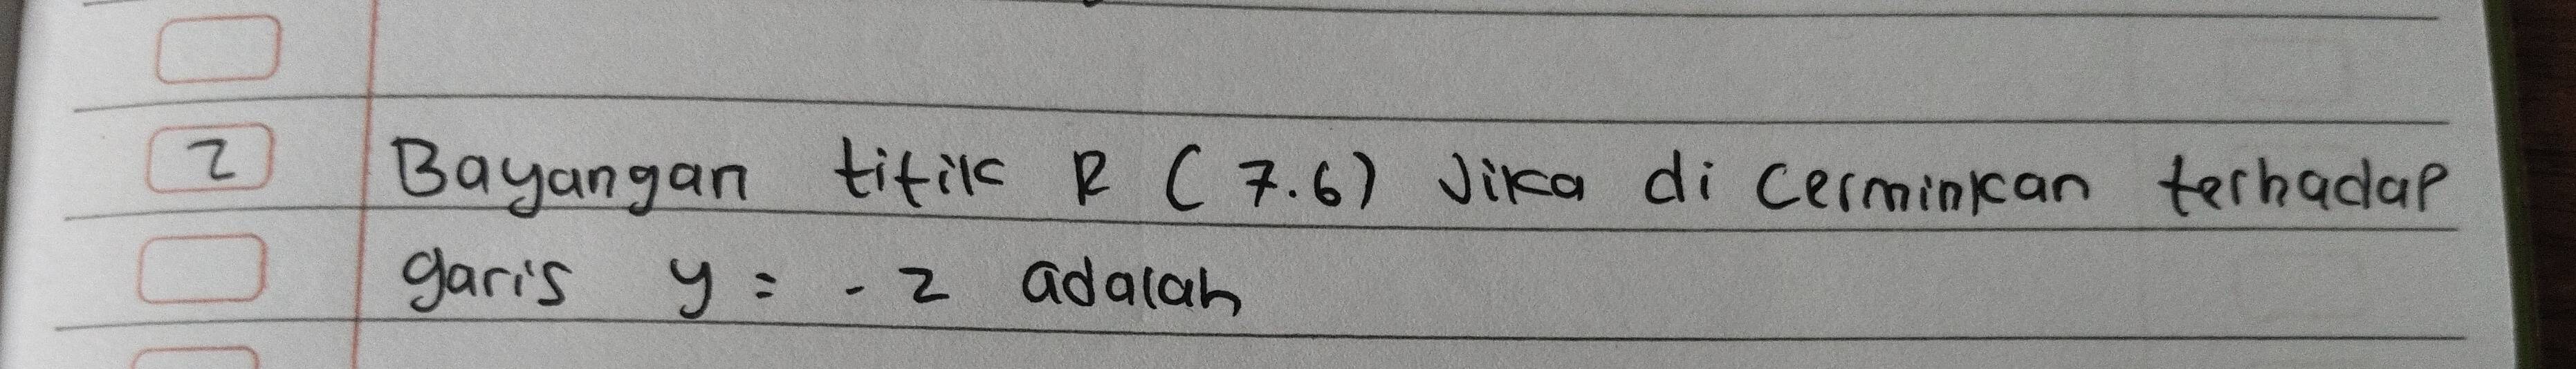 2 Bayangan titik R (7.6) Jika di cerminkan terhadap
garis y = -2 adalah